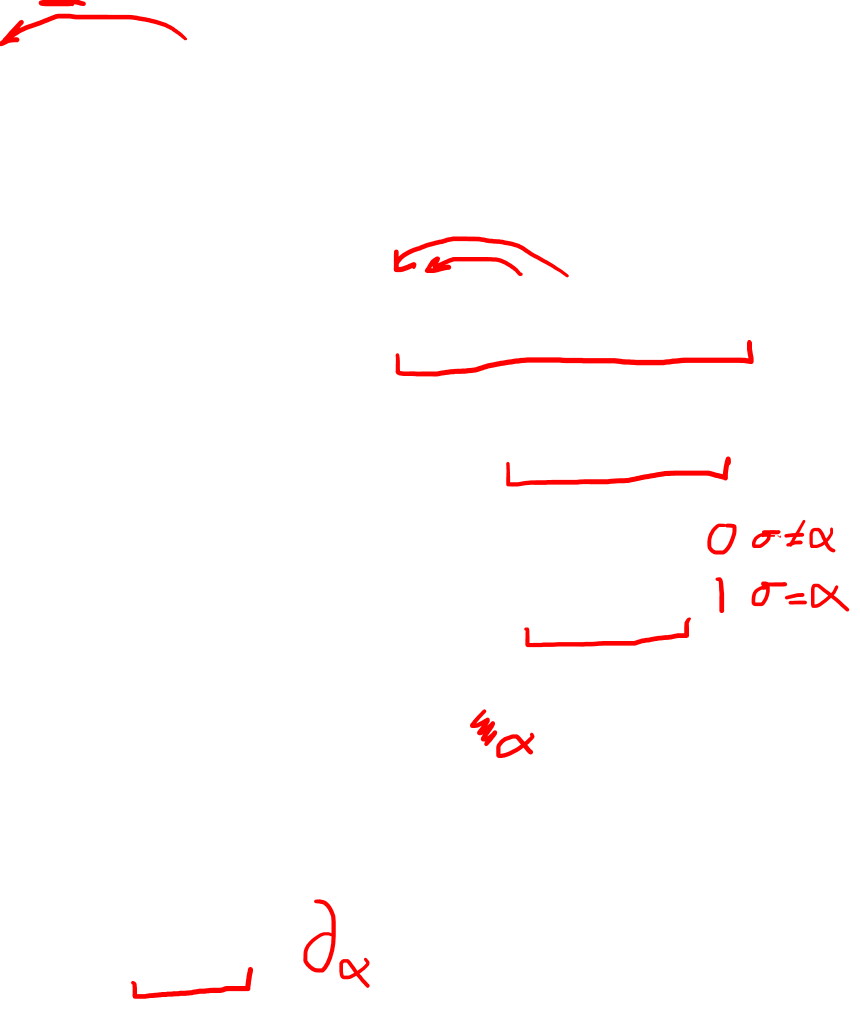 0 σ≠α
1 σ=α
α
∂α